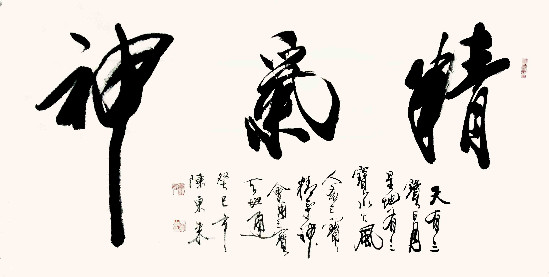 精氣神
天有三
寶日月
星地有三
寶水火風
人有三寶
精氣神
用三寶
天地通
癸巳年
陳東